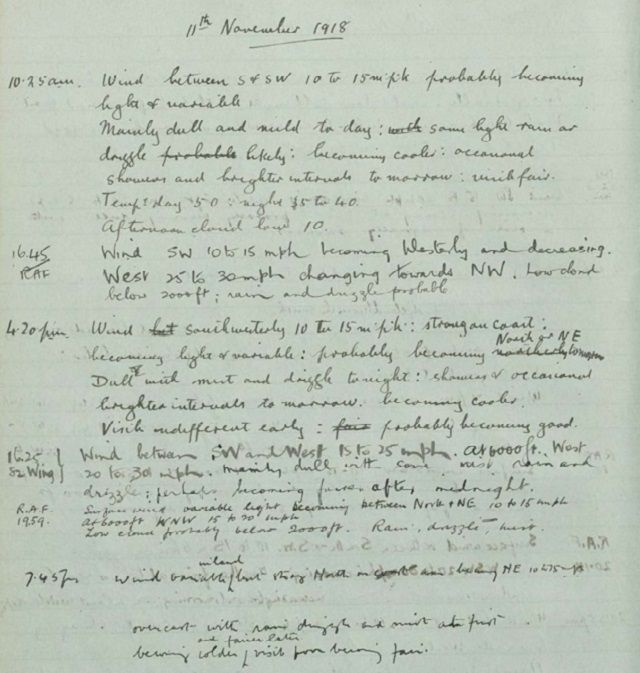 11th November 1918
10.25am. Wind between S & SW 10 to 15 m.p.h. probably becoming
light & variable
Mainly dull and mild to day: with some light rain or
drizzle probable likely: becoming cooler: occasional
showers and brighter intervals to morrow: visib fair.
Temp: day 50: night 35 to 40.
Afternoon cloud low 10.
16.45 Wind SW 10 to 15 mph becoming Westerly and decreasing.
RAF West 25 to 30 mph changing towards NW. Low cloud
below 2000ft; rain and drizzle probable
4.20 pm. Wind southwesterly 10 to 15 m.p.h.: strong on coast:
North or NE
becoming light & variable: probably becoming
Dull with mist and drizzle to night: showers & occasional
brighter intervals to morrow. becoming cooler.
Visib indifferent early: fair probably becoming good.
16.25 Wind between SW and West 15 to 25 mph. At 6000ft. West
82 Wing 20 to 30 mph. mainly dull with some mist rain and
drizzle; perhaps becoming fairer after midnight.
R.A.F. Surface wind variable light becoming between North & NE 10 to 15 mph
1959. At 6000ft WNW 15 to 20 mph
Low cloud probably below 2000ft. Rain, drizzle, mist.
inland
7.45pm Wind variable but strong North on becoming NE 10 to 15 mph
overcast with rain drizzle and mist at first
and fairer later
becoming colder visib poor becoming fair.